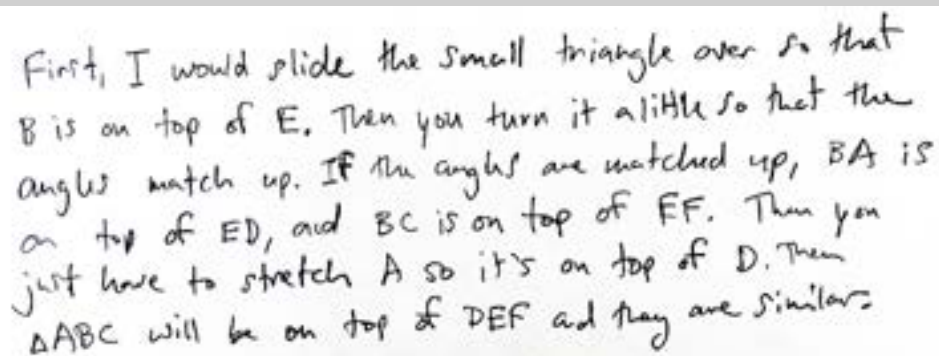 First, I would slide the small triangle over so that
B is on top of E. Then you turn it a little so that the
angles match up. If the angles are matched up, BA is
on top of ED, and BC is on top of EF. Then you
just have to stretch A so it's on top of D. Then
△ABC will be on top of DEF ad they are similar.